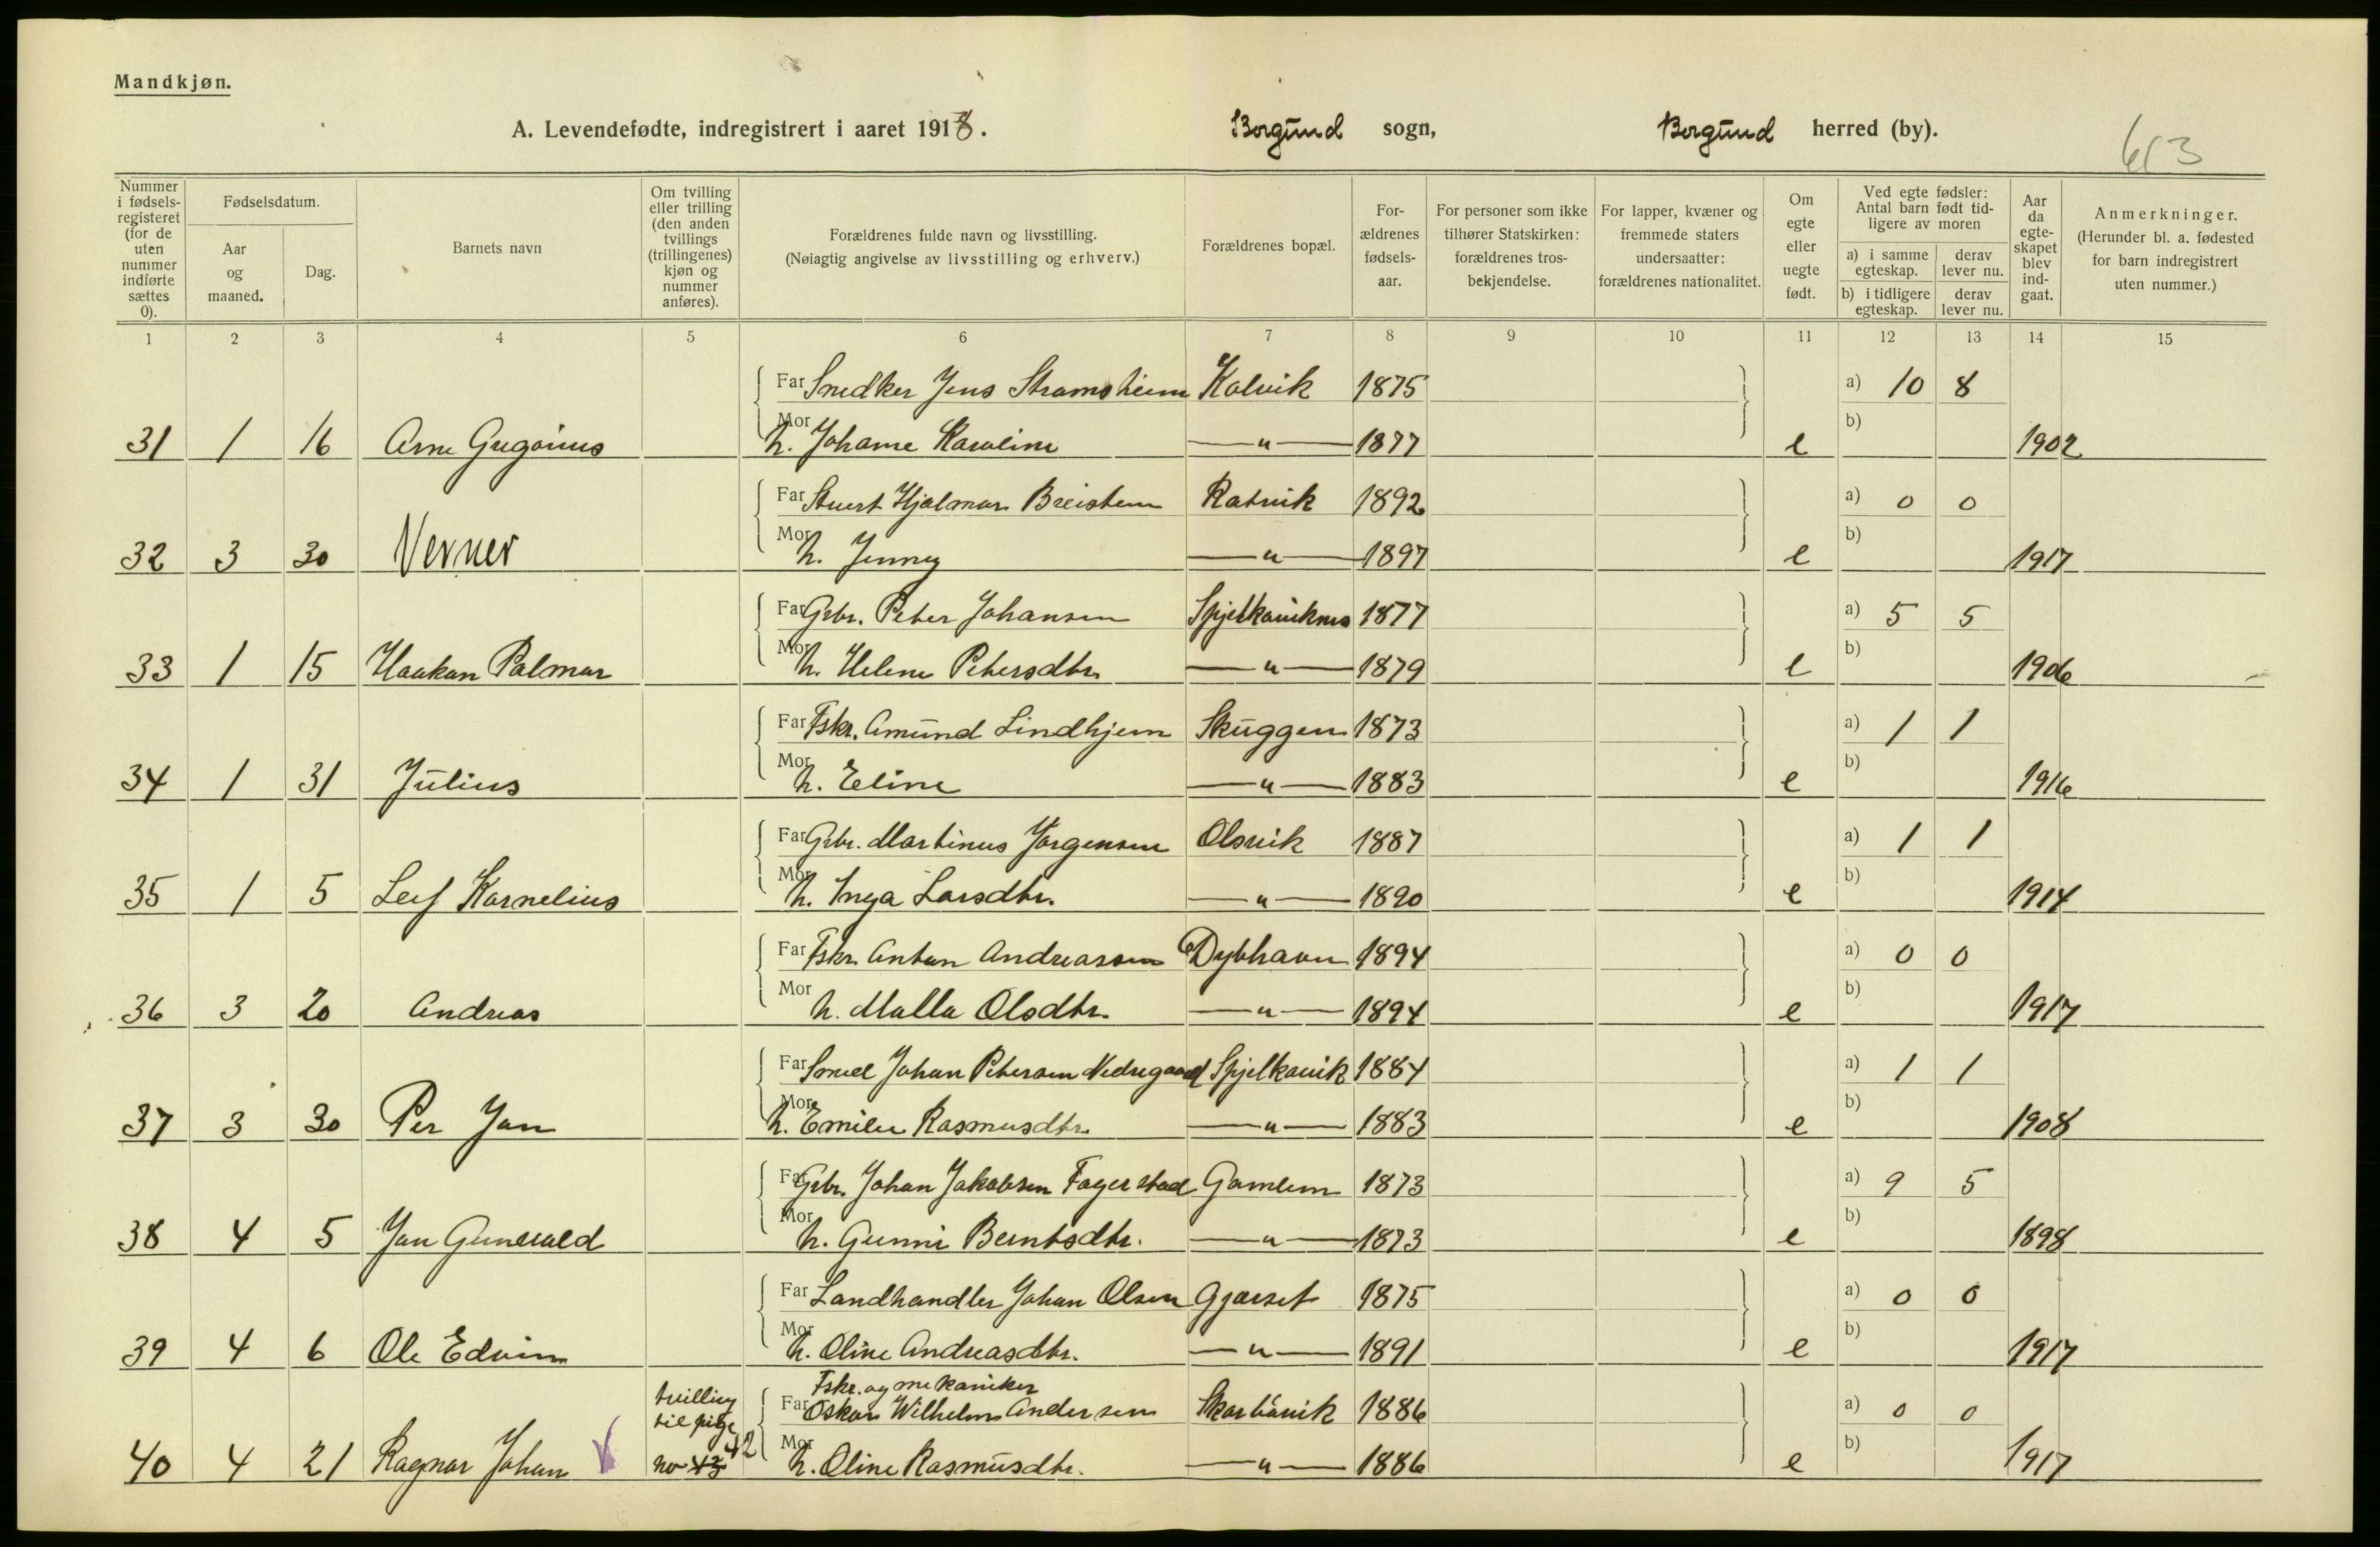 Mandkjøn.
A. Levendefødte, indregistrert i aaret 1918. Borgund sogn, Borgund herred (by).
613
Nummer i fødselsregisteret (for de uten nummer indførte sættes 0).
Fødselsdatum.
Aar og maaned.
Dag.
Barnets navn
Om tvilling eller trilling (den anden tvillings (trillingenes) kjøn og nummer anføres).
Forældrenes fulde navn og livsstilling. (Nøiagtig angivelse av livsstilling og erhverv.)
Forældrenes bopæl.
Forældrenes fødselsaar.
For personer som ikke tilhører Statskirken: forældrenes trosbekjendelse.
For lapper, kvæner og fremmede staters undersaatter: forældrenes nationalitet.
Om egte eller uegte født.
Ved egte fødsler: Antal barn født tidligere av moren
a) i samme egteskap. derav lever nu.
b) i tidligere egteskap. derav lever nu.
Aar da egteskapet blev indgaat.
Anmerkninger. (Herunder bl. a. fødested for barn indregistrert uten nummer.)
1 2 3 4 5 6 7 8 9 10 11 12 13 14 15
Far Snedker Jens Stramsheim Kalvik 1875 a) 10 8
31 1 16 Arne Gregorius Mor h. Johanne Karoline —"— 1877 e b) 1902
Far Stuert Hjalmar Breistein Ratvik 1892 a) 0 0
32 3 30 Verner Mor h. Jenny —"— 1897 e b) 1917
Far Grbr. Peter Johansen Spjelkaviknes 1877 a) 5 5
33 1 15 Haakon Palmar Mor h. Helene Petersdtr. —"— 1879 e b) 1906
Far Fskr. Amund Lindhjem Skuggen 1873 a) 1 1
34 1 31 Julius Mor h. Eline —"— 1883 e b) 1916
Far Grbr. Martinus Jørgensen Olsvik 1887 a) 1 1
35 1 5 Leif Kornelius Mor h. Inga Larsdtr. —"— 1890 e b) 1914
Far Fskr. Anton Andreassen Dybhavn 1894 a) 0 0
36 3 20 Andreas Mor h. Malla Olsdtr. —"— 1894 e b) 1917
Far Smed Johan Petersen Nedregaard Spjelkavik 1884 a) 1 1
37 3 30 Per Jan Mor h. Emilie Rasmusdtr. —"— 1883 e b) 1908
Far Grbr. Johan Jakobsen Fagerstad Gamlem 1873 a) 9 5
38 4 5 Jan Gunvald Mor h. Gunni Berntsdtr. —"— 1873 e b) 1898
Far Landhandler Johan Olsen Gjærset 1875 a) 0 0
39 4 6 Ole Edvin Mor h. Oline Andreasdtr. —"— 1891 e b) 1917
tvilling Fskr. og mekaniker
til pige Far Oskar Wilhelm Andersen Skarbøvik 1886 a) 0 0
40 4 21 Ragnar Johan no 43 42 Mor h. Oline Rasmusdtr. —"— 1886 e b) 1917